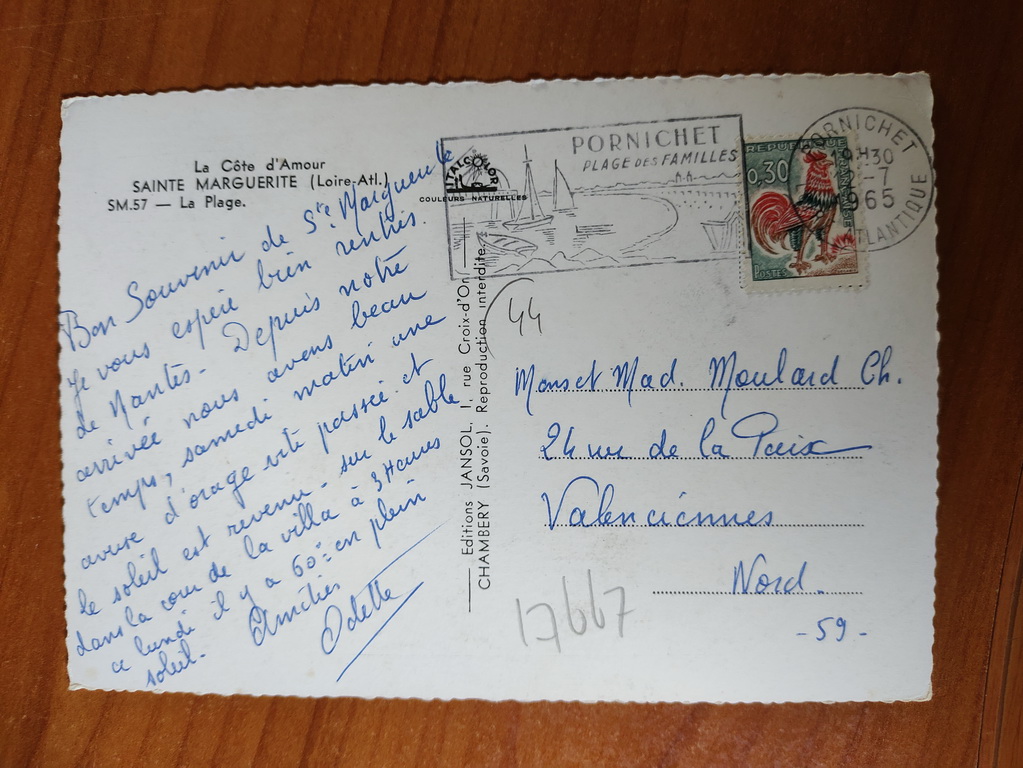 La Côte d'Amour
SAINTE MARGUERITE (Loire-Atl.)
SM.57 — La Plage.
ITALCOLOR
COULEURS NATURELLES
Bon Souvenir de Ste Marguerite
Je vous espère bien rentrés.
de Nantes - Depuis notre
arrivée nous avons beau
temps, samedi matin une
averse d'orage vite passée et
le soleil est revenu - sur le sable
dans la cour de la villa à 3 Heures
ce lundi il y a 60° en plein
soleil -
Amitiés
Odette
Editions JANSOL, 1, rue Croix-d'Or
CHAMBERY (Savoie). Reproduction interdite.
PORNICHET
PLAGE DES FAMILLES
REPUBLIQUE
FRANÇAISE
0,30
POSTES
PORNICHET
19H30
-7
1965
ATLANTIQUE
44
Mons et Mad. Moulard Ch.
24 rue de la Paix
Valenciennes
Nord.
- 59 -
17667